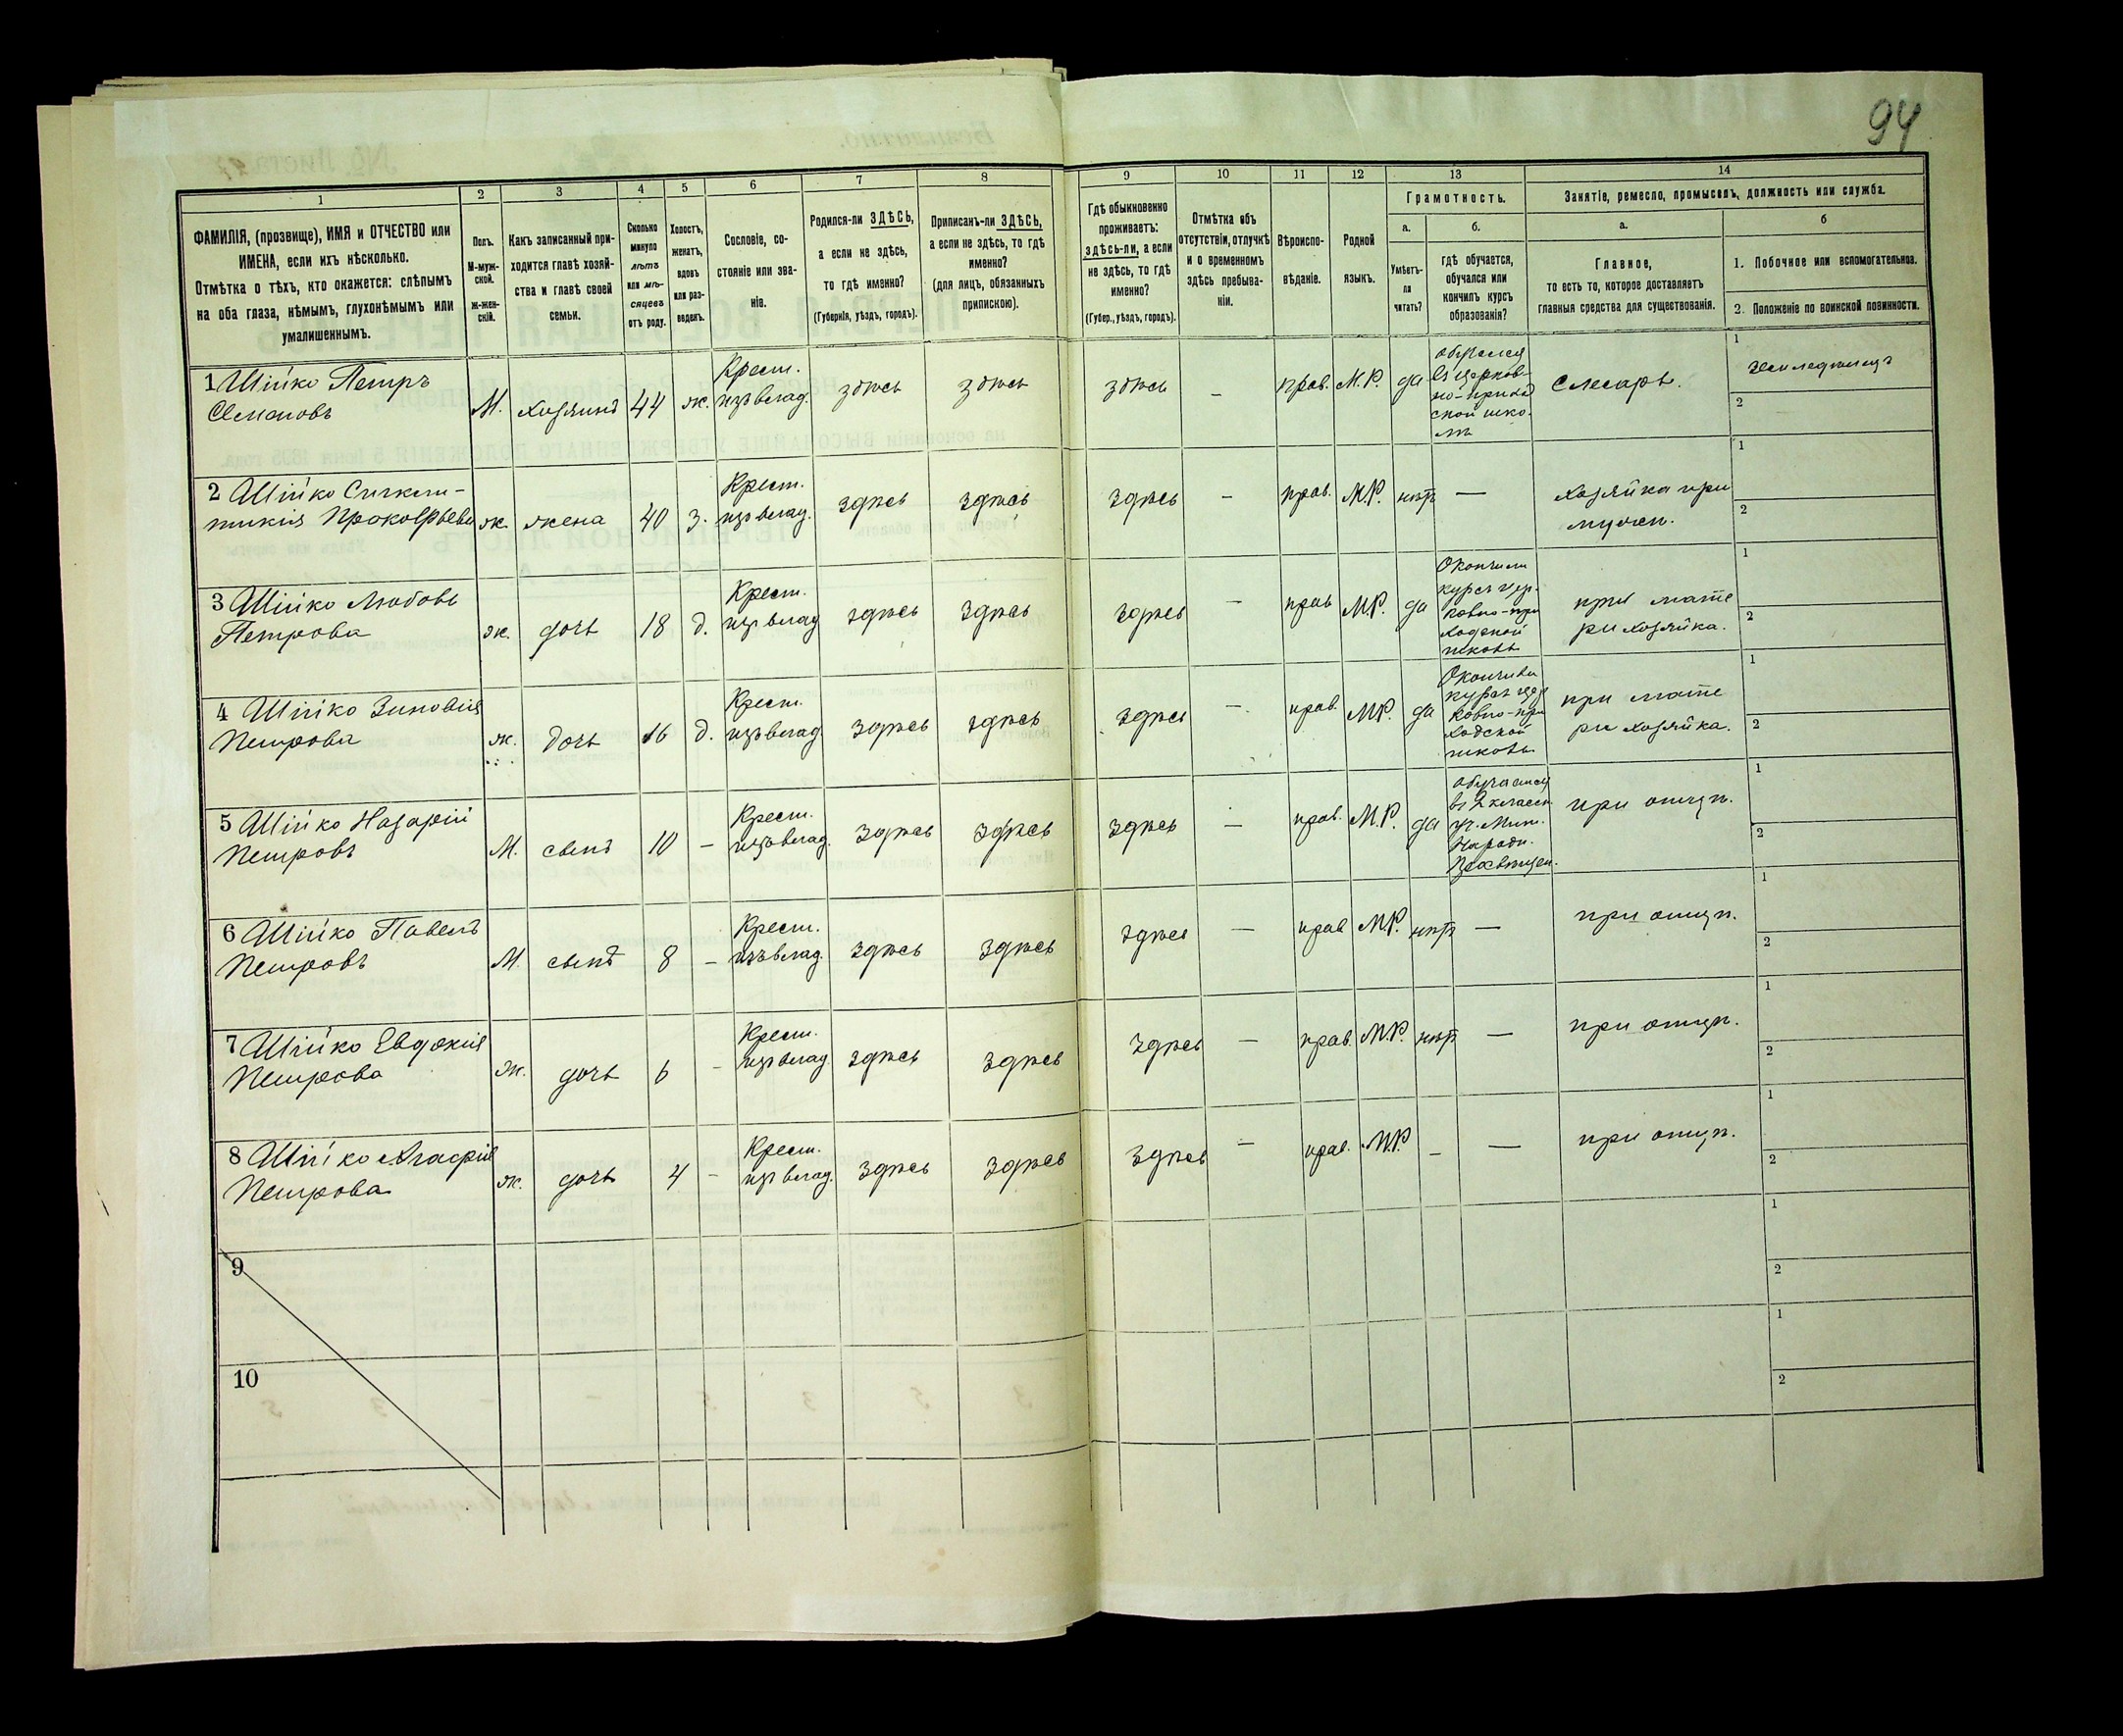 94
1 2 3 4 5 6 7 8 9 10 11 12 13 14
ФАМИЛІЯ, (прозвище), ИМЯ и ОТЧЕСТВО или
ИМЕНА, если ихъ нѣсколько.
Отмѣтка о тѣхъ, кто окажется: слѣпымъ
на оба глаза, нѣмымъ, глухонѣмымъ или
умалишеннымъ.
Полъ.
М-муж-
ской.
ж-жен-
скій.
Какъ записанный при-
ходится главѣ хозяй-
ства и главѣ своей
семьи.
Сколько
минуло
лѣтъ
или мѣ-
сяцевъ
отъ роду.
Холостъ,
женатъ,
вдовъ
или раз-
веденъ.
Сословіе, со-
стояніе или зва-
ніе.
Родился-ли ЗДѢСЬ,
а если не здѣсь,
то гдѣ именно?
(Губернія, уѣздъ, городъ).
Приписанъ-ли ЗДѢСЬ,
а если не здѣсь, то гдѣ
именно?
(для лицъ, обязанныхъ
припискою).
Гдѣ обыкновенно
проживаетъ:
здѣсь-ли, а если
не здѣсь, то гдѣ
именно?
(Губер., уѣздъ, городъ).
Отмѣтка объ
отсутствіи, отлучкѣ
и о временномъ
здѣсь пребыва-
ніи.
Вѣроиспо-
вѣданіе.
Родной
языкъ.
Грамотность.
а.
Умѣетъ-
ли
читать?
б.
гдѣ обучается,
обучался или
кончилъ курсъ
образованія?
Занятіе, ремесло, промыселъ, должность или служба.
а.
Главное,
то есть то, которое доставляетъ
главныя средства для существованія.
б
1. Побочное или вспомогательное.
2. Положеніе по воинской повинности.
1 Шійко Петръ
Семеновъ
М. хозяинъ 44 ж.
Крест.
изъ влад.
здѣсь здѣсь здѣсь - прав. М.Р. да
обучался
въ церков-
но-приход
ской шко-
лѣ
слесарь.
1
земледѣлецъ
2
2 Шійко
Прокофьева ж. жена 40 з.
Крест.
изъ влад.
здѣсь здѣсь здѣсь - прав. М.Р. нѣтъ —
хозяйка при
мужѣ.
1
2
3 Шійко Любовь
Петрова ж. дочь 18 д.
Крест.
изъ влад
здѣсь здѣсь здѣсь — прав М.Р. да
Окончила
курсъ цер-
ковно-при
ходской
школы
при мате
ри хозяйка.
1
2
4 Шійко Зиновія
Петрова ж. дочь 16 д.
Крест.
изъ влад
здѣсь здѣсь здѣсь — прав. М.Р. да
Окончила
курсъ цер
ковно-при
ходской
школы
при мате
ри хозяйка.
1
2
5 Шійко Назарій
Петровъ М. сынъ 10 -
Крест.
изъ влад.
здѣсь здѣсь здѣсь — прав. М.Р. да
обучается
въ 2 классн.
уч. Мин.
Народн.
Просвѣщен.
при отцѣ.
1
2
6 Шійко Павелъ
Петровъ М. сынъ 8 -
Крест.
изъ влад.
здѣсь здѣсь здѣсь — прав М.Р. нѣтъ —
при отцѣ.
1
2
7 Шійко Евдокія
Петрова ж. дочь 6 -
Крест.
изъ влад.
здѣсь здѣсь здѣсь — прав. М.Р. нѣтъ —
при отцѣ.
1
2
8 Шійко Агафія
Петрова ж. дочь 4 -
Крест.
изъ влад.
здѣсь здѣсь здѣсь — прав. М.Р - —
при отцѣ.
1
2
9
1
2
10
1
2